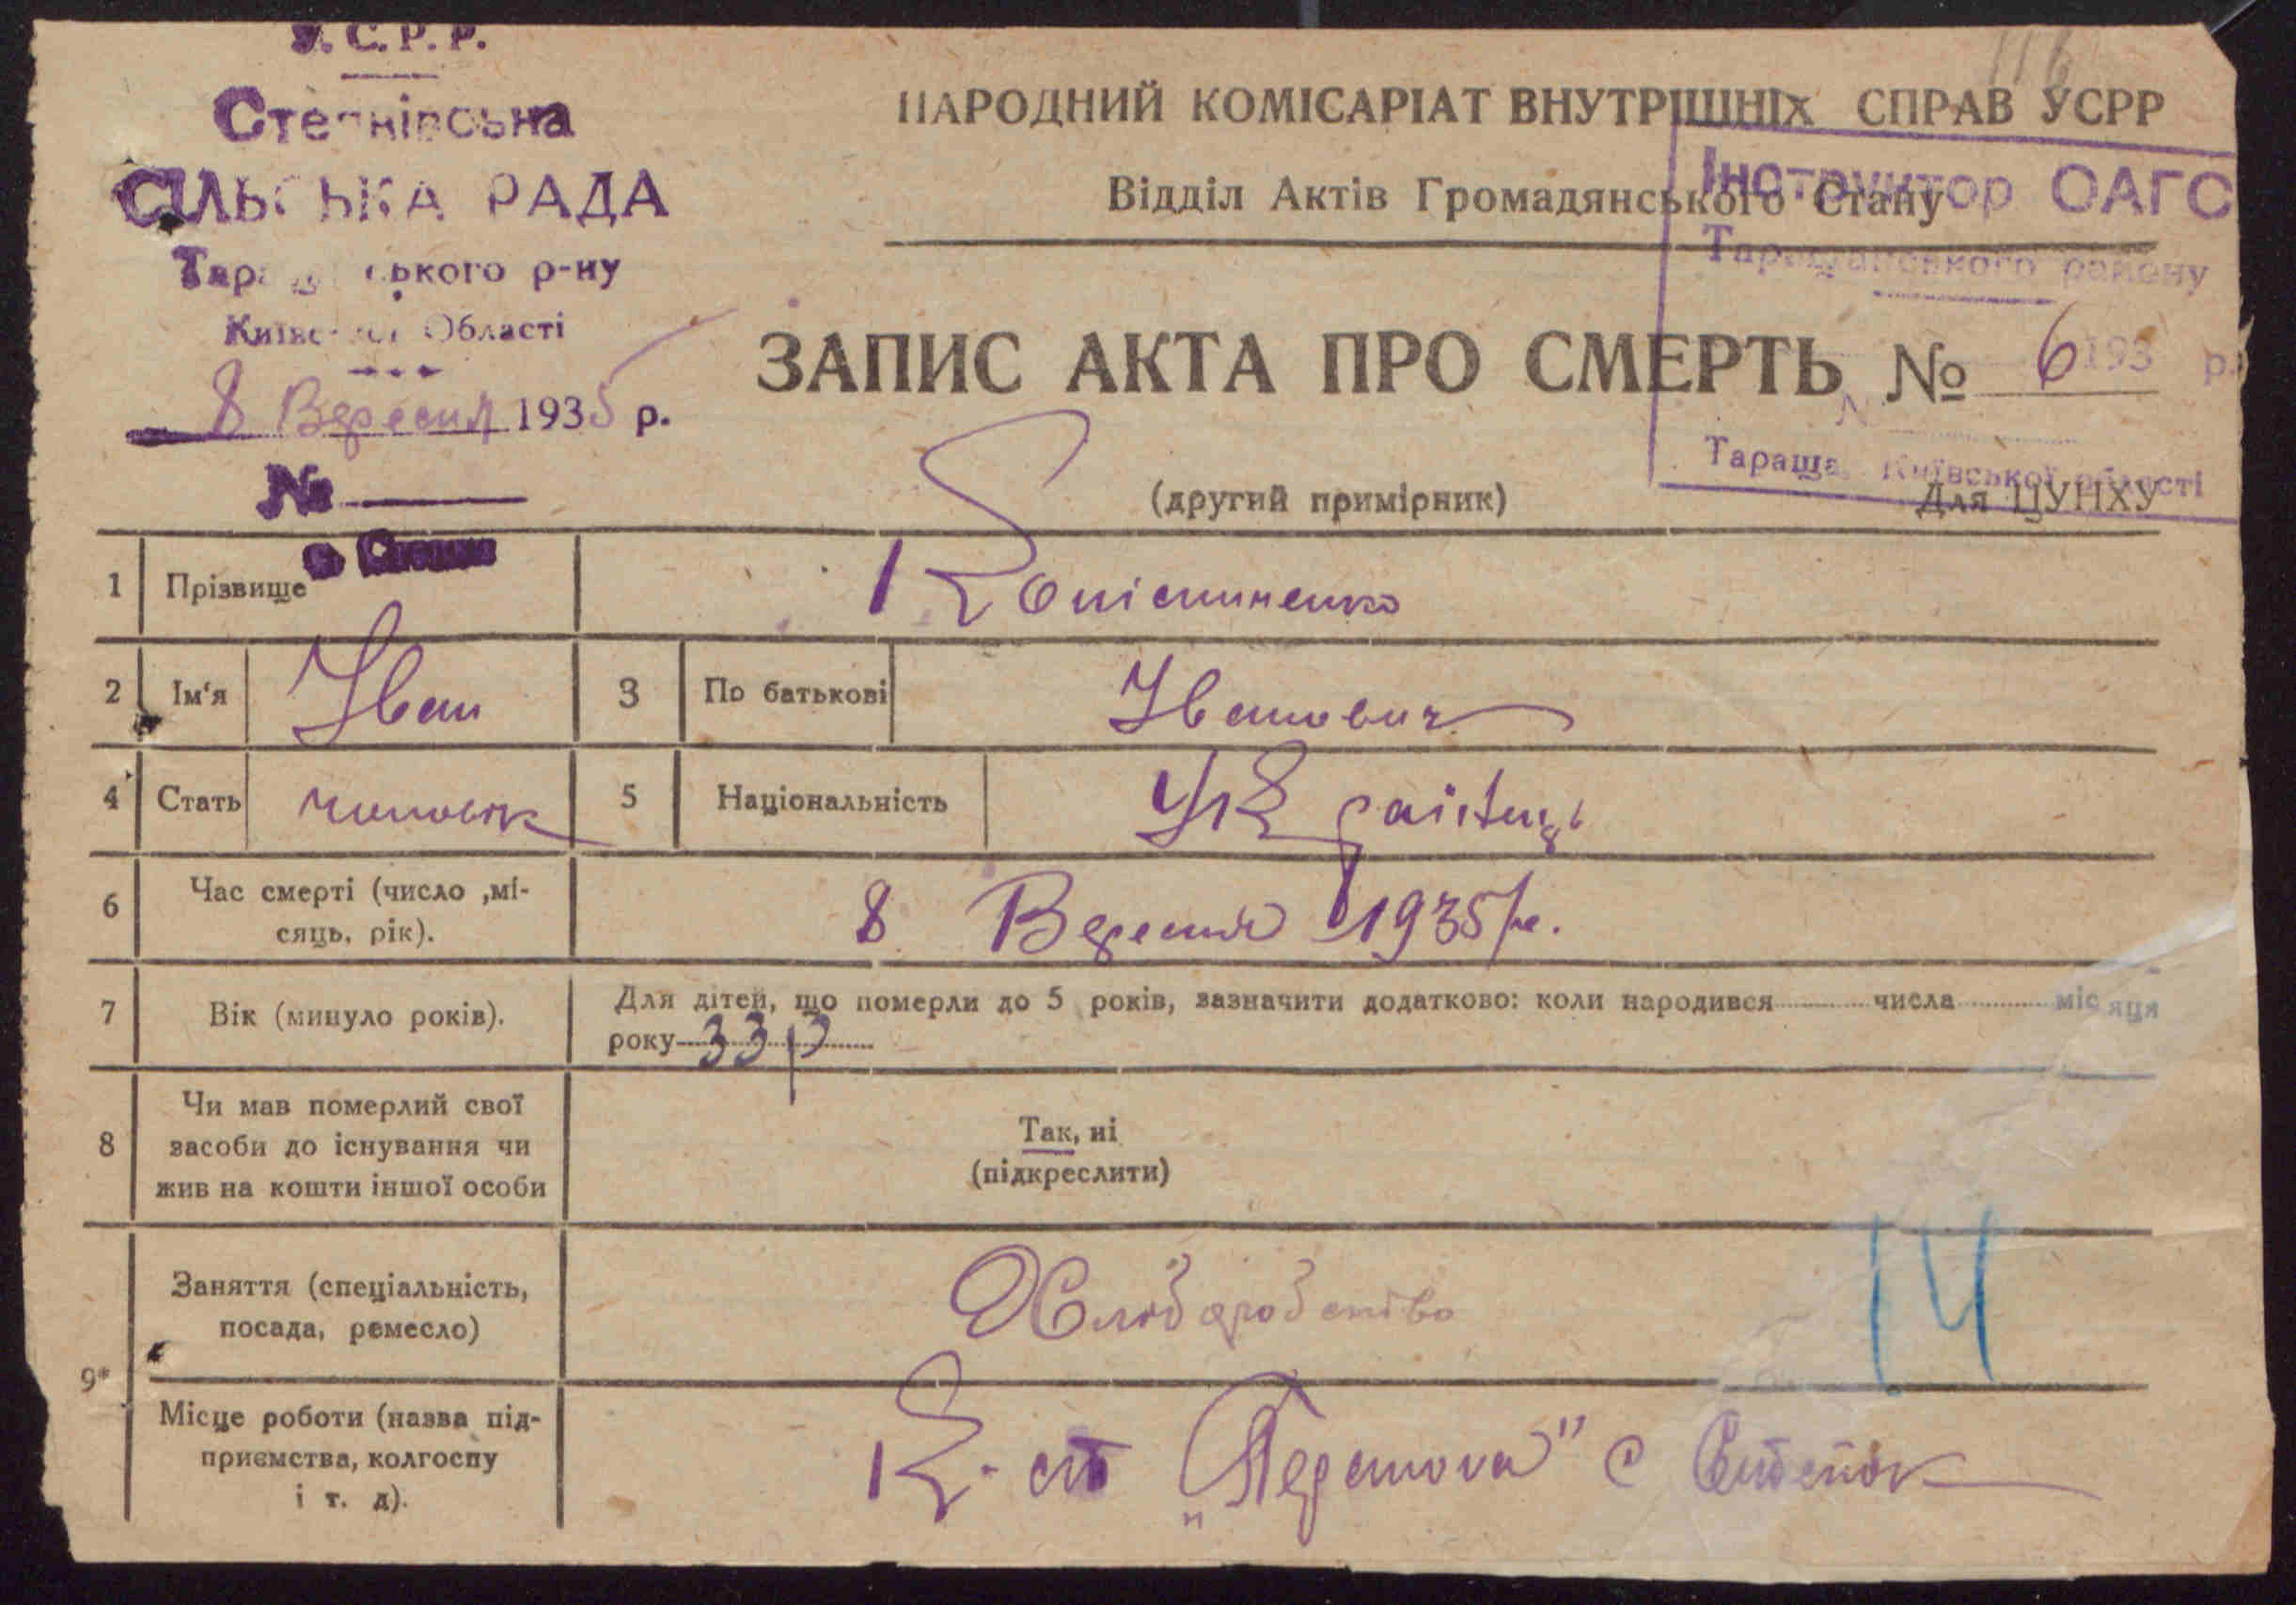 У. С. Р. Р.
СІЛЬСЬКА РАДА
Таращанського р-ну
Київської Області
8 Вересня 1935 р.
№
116
НАРОДНИЙ КОМІСАРІАТ ВНУТРІШНІХ СПРАВ УСРР
Відділ Актів Громадянського Стану
Інструктор ОАГС
Таращанського району
193 р.
№
Тараща Київської області
ЗАПИС АКТА ПРО СМЕРТЬ № 6
(другий примірник)
Для ЦУНХУ
1 Прізвище
2 Ім'я Іван 3 По батькові Іванович
4 Стать чоловік 5 Національність Українець
6 Час смерті (число ,мі-
сяць, рік).
8 Вересня 1935 р.
7 Вік (минуло років).
Для дітей, що померли до 5 років, зазначити додатково: коли народився числа місяця
року 33 р
8 Чи мав померлий свої
засоби до існування чи
жив на кошти іншої особи
Так, ні
(підкреслити)
9* Заняття (спеціальність,
посада, ремесло)
Хліборобство
14
Місце роботи (назва під-
приємства, колгоспу
і т. д).
К-сп „Перемога" с